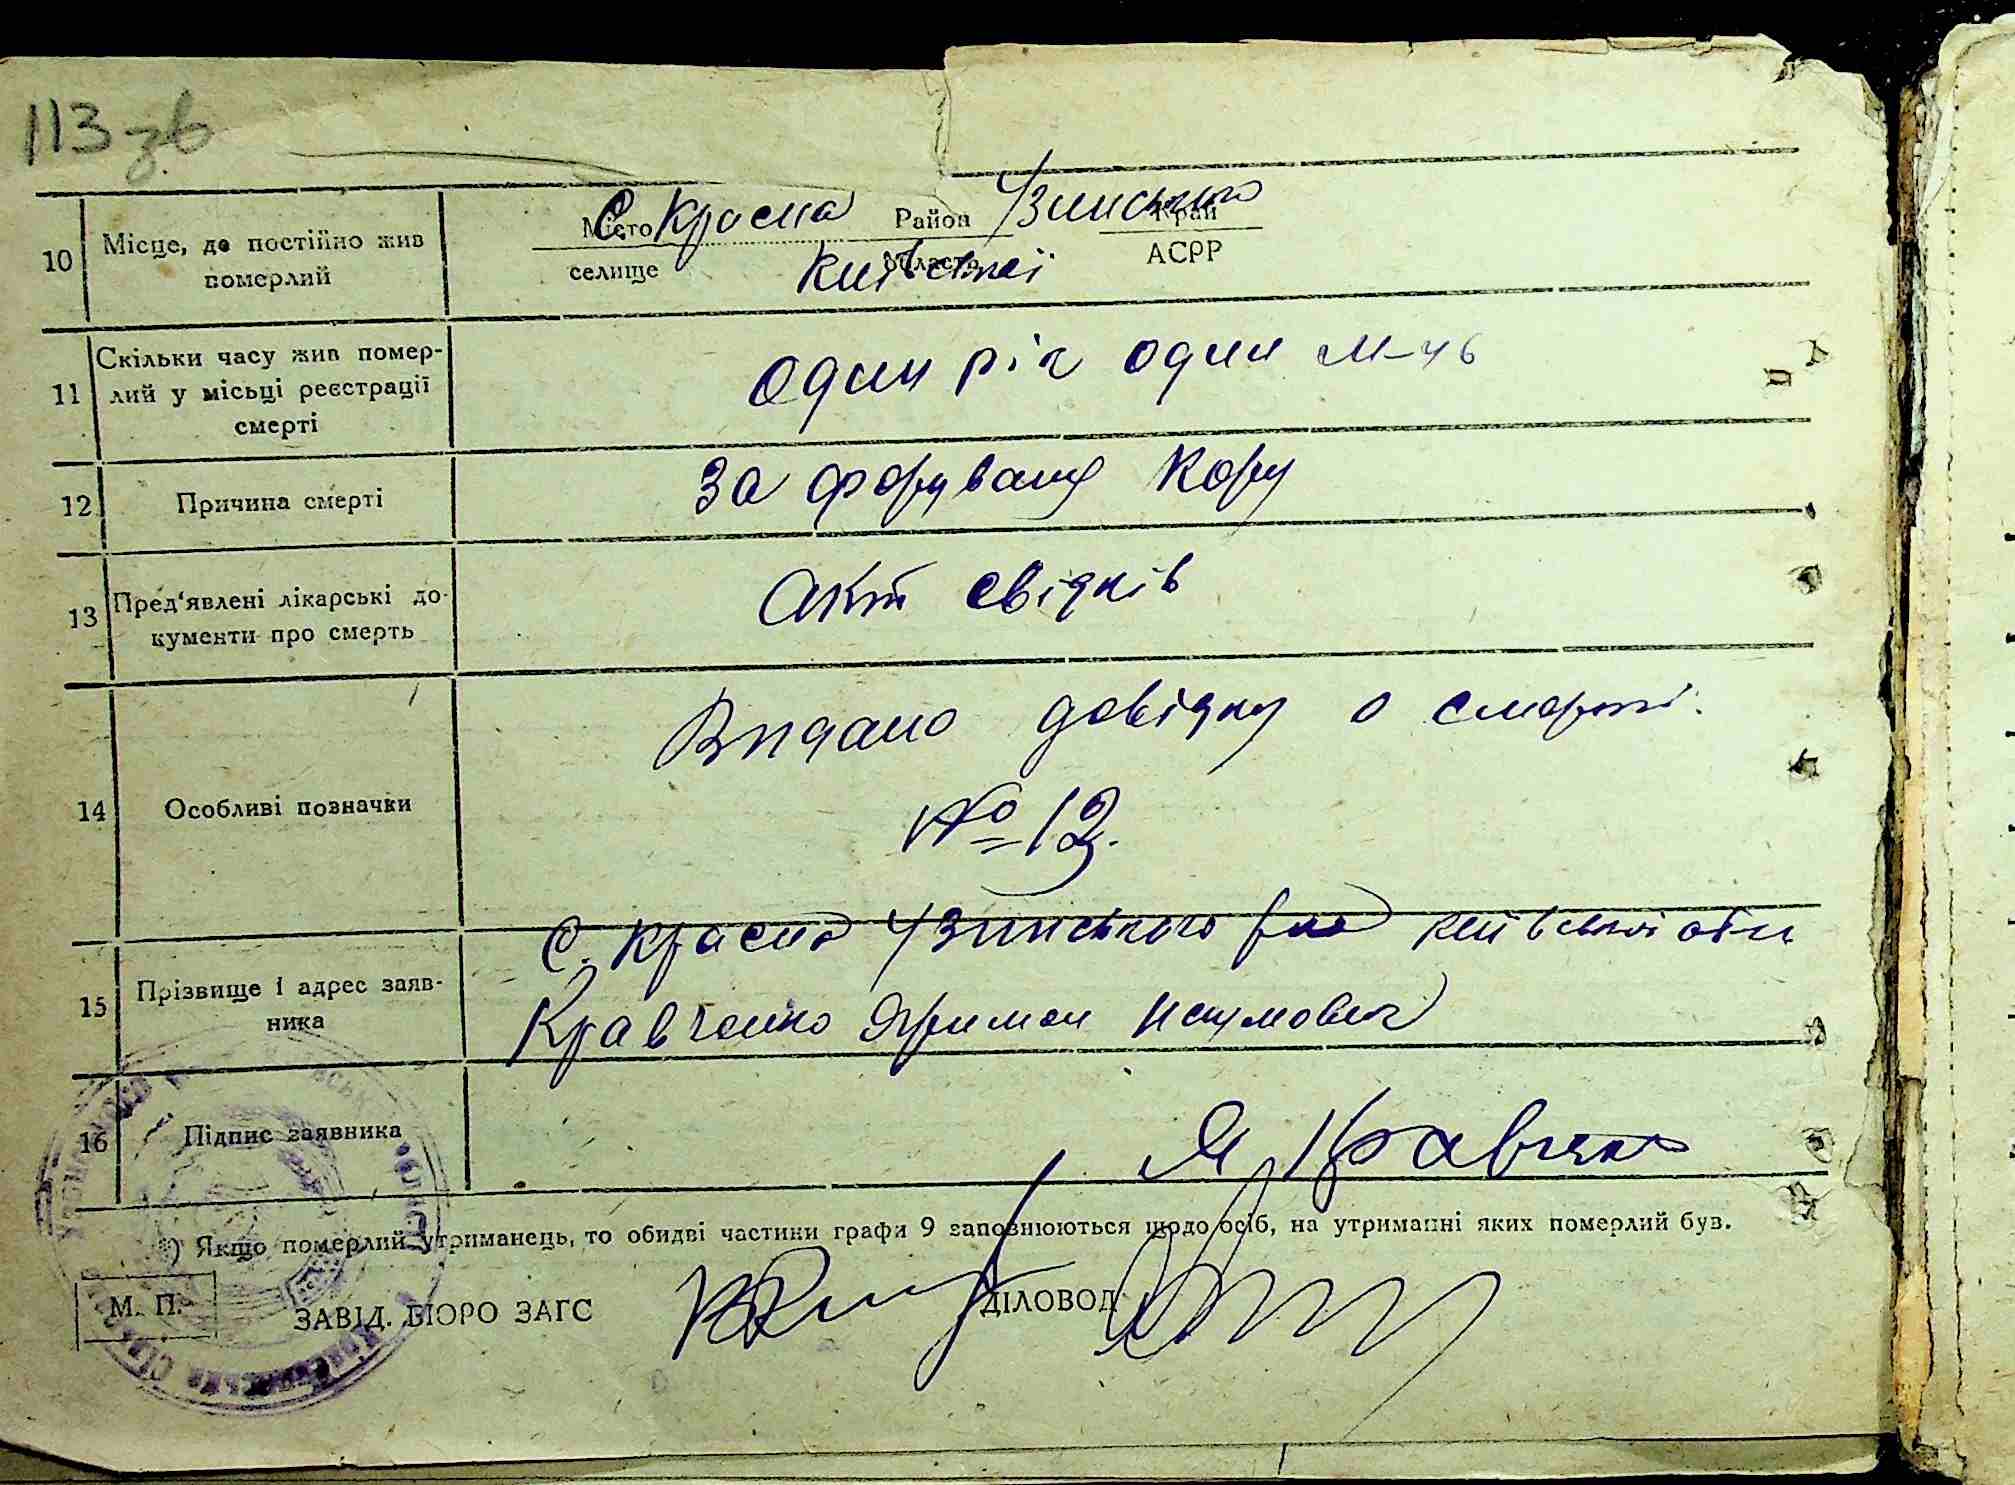 113 зв
10 Місце, де постійно жив померлий Місто С Красна Район Узинського Край
селище Київської область АСРР
11 Скільки часу жив помер-
лий у місьці реєстрації
смерті
один рік один м-ць
12 Причина смерті
За форувану Кору
13 Пред'явлені лікарські до-
кументи про смерть
Акт свідків
14 Особливі позначки
Видано довідку о смерті.
№ 12.
15 Прізвище і адрес заяв-
ника
С. Красна Узинського р-на київської обл
Кравченко Яримон Наумович
16 Підпис заявника
Я Кравченко
*) Якщо померлий утриманець, то обидві частини графи 9 заповнюються щодо осіб, на утриманні яких померлий був.
М. П. ЗАВІД. БЮРО ЗАГС ДІЛОВОД